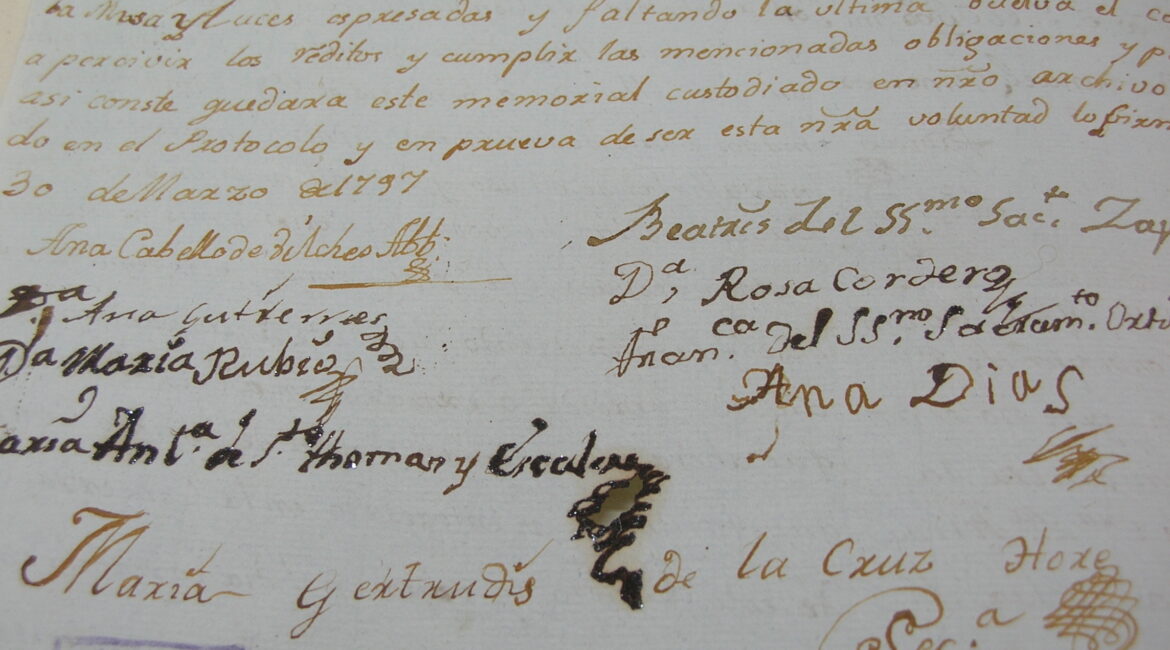 Misa y luces espresadas y faltando la ultima buelva el
a percivir los réditos y cumplir las mencionadas obligaciones y p
asi conste quedara este memorial custodiado en nrõ archivo
do en el Protocolo y en prueva de ser esta nrã voluntad lo firm
30 de Marzo de 1797
Ana Cabello de Vilches Abb.
Beatris del SS.mo Sac.to Zap
Dª Rosa Cordero
Ana Gutierrez
Fran.ca del SS.mo Sacram.to Orti
Dª Maria Rubio
Ana Dias
aria Ant.ª de S.to Thomas y Escalera
Maria Gertrudis de la Cruz Hore
Sec.ª